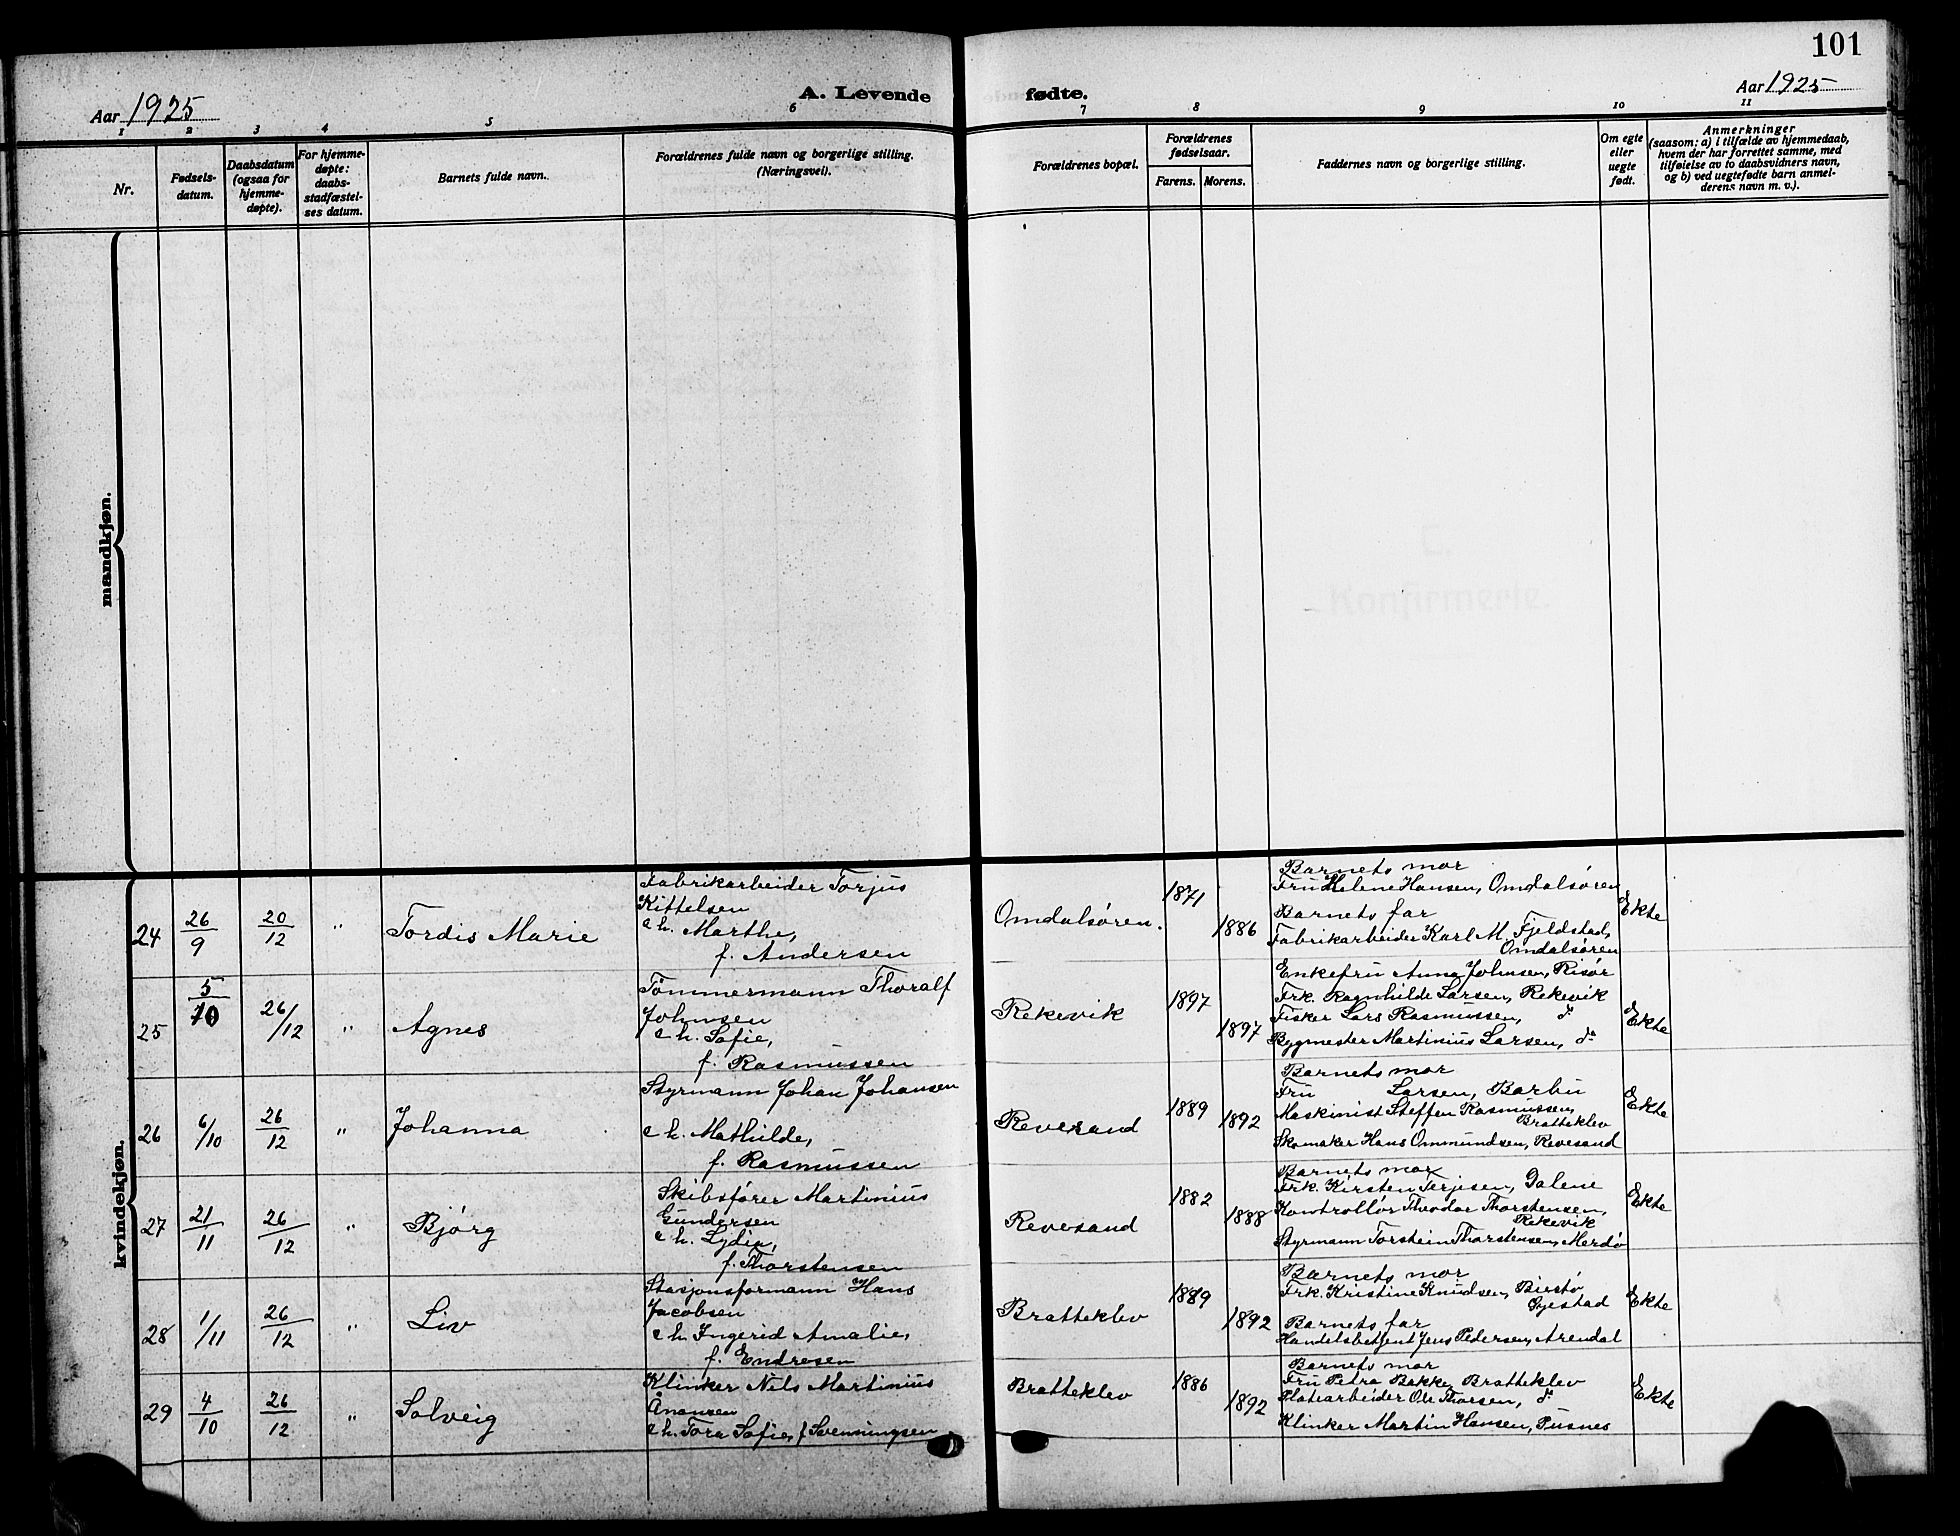 101
Aar 1925
A. Levende fødte.
Aar 1925
1 2 3 4 5 6 7 8 9 10 11
Nr.
Fødsels-
datum.
Daabsdatum
(ogsaa for
hjemme-
døpte).
For hjemme-
døpte:
daabs-
stadfæstel-
ses datum.
Barnets fulde navn.
Forældrenes fulde navn og borgerlige stilling.
(Næringsvei).
Forældrenes bopæl.
Forældrenes
fødselsaar.
Farens. Morens.
Faddernes navn og borgerlige stilling.
Om egte
eller
uegte
født.
Anmerkninger
(saasom: a) i tilfælde av hjemmedaab,
hvem der har forrettet samme, med
tilføielse av to daabsvidners navn,
og b) ved uegtefødte barn anmel-
derens navn m. v.).
mandkjøn.
kvindekjøn.
24
26/9
20/12
"
Tordis Marie
Fabrikarbeider Torjus
Kittelsen
o.h. Marthe,
f. Andersen
Omdalsøren.
1871
1886
Barnets mor
Fru Helene Hansen, Omdalsøren
Barnets far
Fabrikarbeider Karl M. Fjeldstad,
Omdalsøren
Ekte
25
5/10
26/12
"
Agnes
Tömmermann Thoralf
Johnsen
o.h. Sofie,
f. Rasmussen
Rekevik
1897
1897
Enkefru Anna Johnsen, Risör
Frk. Ragnhilde Larsen, Rekevik
Fisker Lars Rasmussen, do
Bygmester Martinius Larsen, do
Ekte
26
6/10
26/12
"
Johanna
Styrmann Johan Johansen
o.h. Mathilde,
f. Rasmussen
Revesand
1889
1892
Barnets mor
Fru Larsen, Barbu
Maskinist Steffen Rasmussen,
Bratteklev
Skomaker Hans Ommundsen, Revesand
Ekte
27
21/11
26/12
"
Bjørg
Skibsfører Martinius
Gundersen
o.h. Lydia,
f. Thorstensen
Revesand
1882
1888
Barnets mor
Frk. Kirsten Terjesen, Galene
Kontrollør Theodor Thorstensen,
Rekevik
Styrmann Torstein Thorstensen, Merdø
Ekte
28
1/11
26/12
"
Liv
Stasjonsformann Hans
Jacobsen
o.h. Ingerid Amalie,
f. Endresen
Bratteklev
1889
1892
Barnets mor
Frk. Kristine Knudsen,
Øyestad
Barnets far
Handelsbetjent Jens Pedersen, Arendal
Ekte
29
4/10
26/12
"
Solveig
Klinker Nils Martinius
Anonsen
o.h. Tora Sofie, f Svenningsen
Bratteklev
1886
1892
Barnets mor
Fru Petra Bakke, Bratteklev
Platearbeider Ole Thorsen, do
Klinker Martin Hansen, Pusnes
Ekte